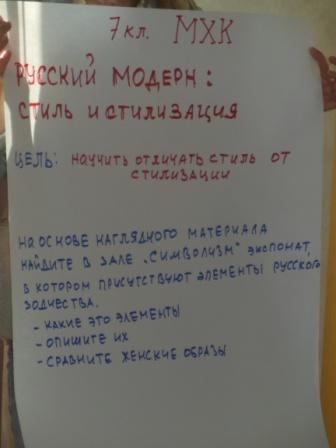 7 кл. МХК
РУССКИЙ МОДЕРН:
СТИЛЬ И СТИЛИЗАЦИЯ
ЦЕЛЬ: НАУЧИТЬ ОТЛИЧАТЬ СТИЛЬ ОТ
СТИЛИЗАЦИИ
НА ОСНОВЕ НАГЛЯДНОГО МАТЕРИАЛА
НАЙДИТЕ В ЗАЛЕ „СИМВОЛИЗМ" ЭКСПОНАТ,
В КОТОРОМ ПРИСУТСТВУЮТ ЭЛЕМЕНТЫ РУССКОГО
ЗОДЧЕСТВА.
- КАКИЕ ЭТО ЭЛЕМЕНТЫ
- ОПИШИТЕ ИХ
- СРАВНИТЕ ЖЕНСКИЕ ОБРАЗЫ